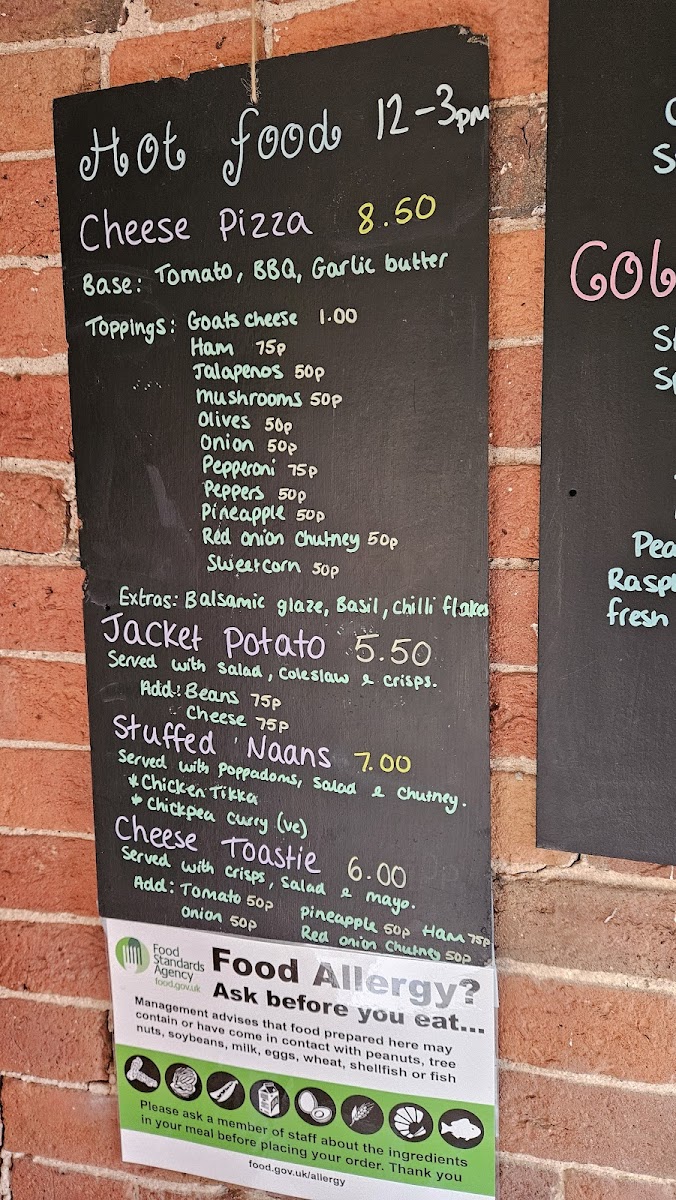 Hot food 12-3pm
Cheese Pizza 8.50
Base: Tomato, BBQ, Garlic butter
Toppings: Goats cheese 1.00
Ham 75p
Jalapenos 50p
mushrooms 50p
Olives 50p
Onion 50p
Pepperoni 75p
Peppers 50p
Pineapple 50p
Red onion Chutney 50p
Sweetcorn 50p
Extras: Balsamic glaze, Basil, Chilli flakes
Jacket Potato 5.50
Served with salad, coleslaw & crisps.
Add: Beans 75p
Cheese 75p
Stuffed Naans 7.00
Served with Poppadoms, salad & chutney.
* Chicken Tikka
* Chickpea curry (ve)
Cheese Toastie 6.00
Served with crisps, salad & mayo.
Add: Tomato 50p Pineapple 50p Ham 75p
Onion 50p Red onion Chutney 50p
Food
Standards
Agency
food.gov.uk
Food Allergy?
Ask before you eat...
Management advises that food prepared here may
contain or have come in contact with peanuts, tree
nuts, soybeans, milk, eggs, wheat, shellfish or fish
Please ask a member of staff about the ingredients
in your meal before placing your order. Thank you
food.gov.uk/allergy
fresh